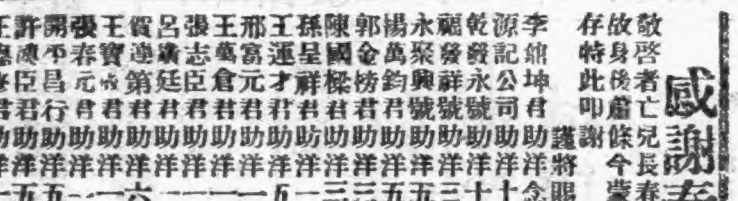 感謝春
敬啓者亡兒長春
故身後蕭條今蒙
存特此叩謝
謹將賜
李鼎坤君助洋念
源記公司助洋十
乾發永號助洋十
福發祥號助洋三
永聚興號助洋五
楊萬鈞君助洋五
郭金榜君助洋三
陳國樑君助洋三
孫呈祥君助洋一
王運才君助洋五
邢富元君助洋一
王萬倉君助洋一
張志臣君助洋一
呂廣廷君助洋一
賀連第君助洋六
王寶君助洋一
張春元君助洋一
開平昌行助洋五
許臣君助洋五
王君助洋一